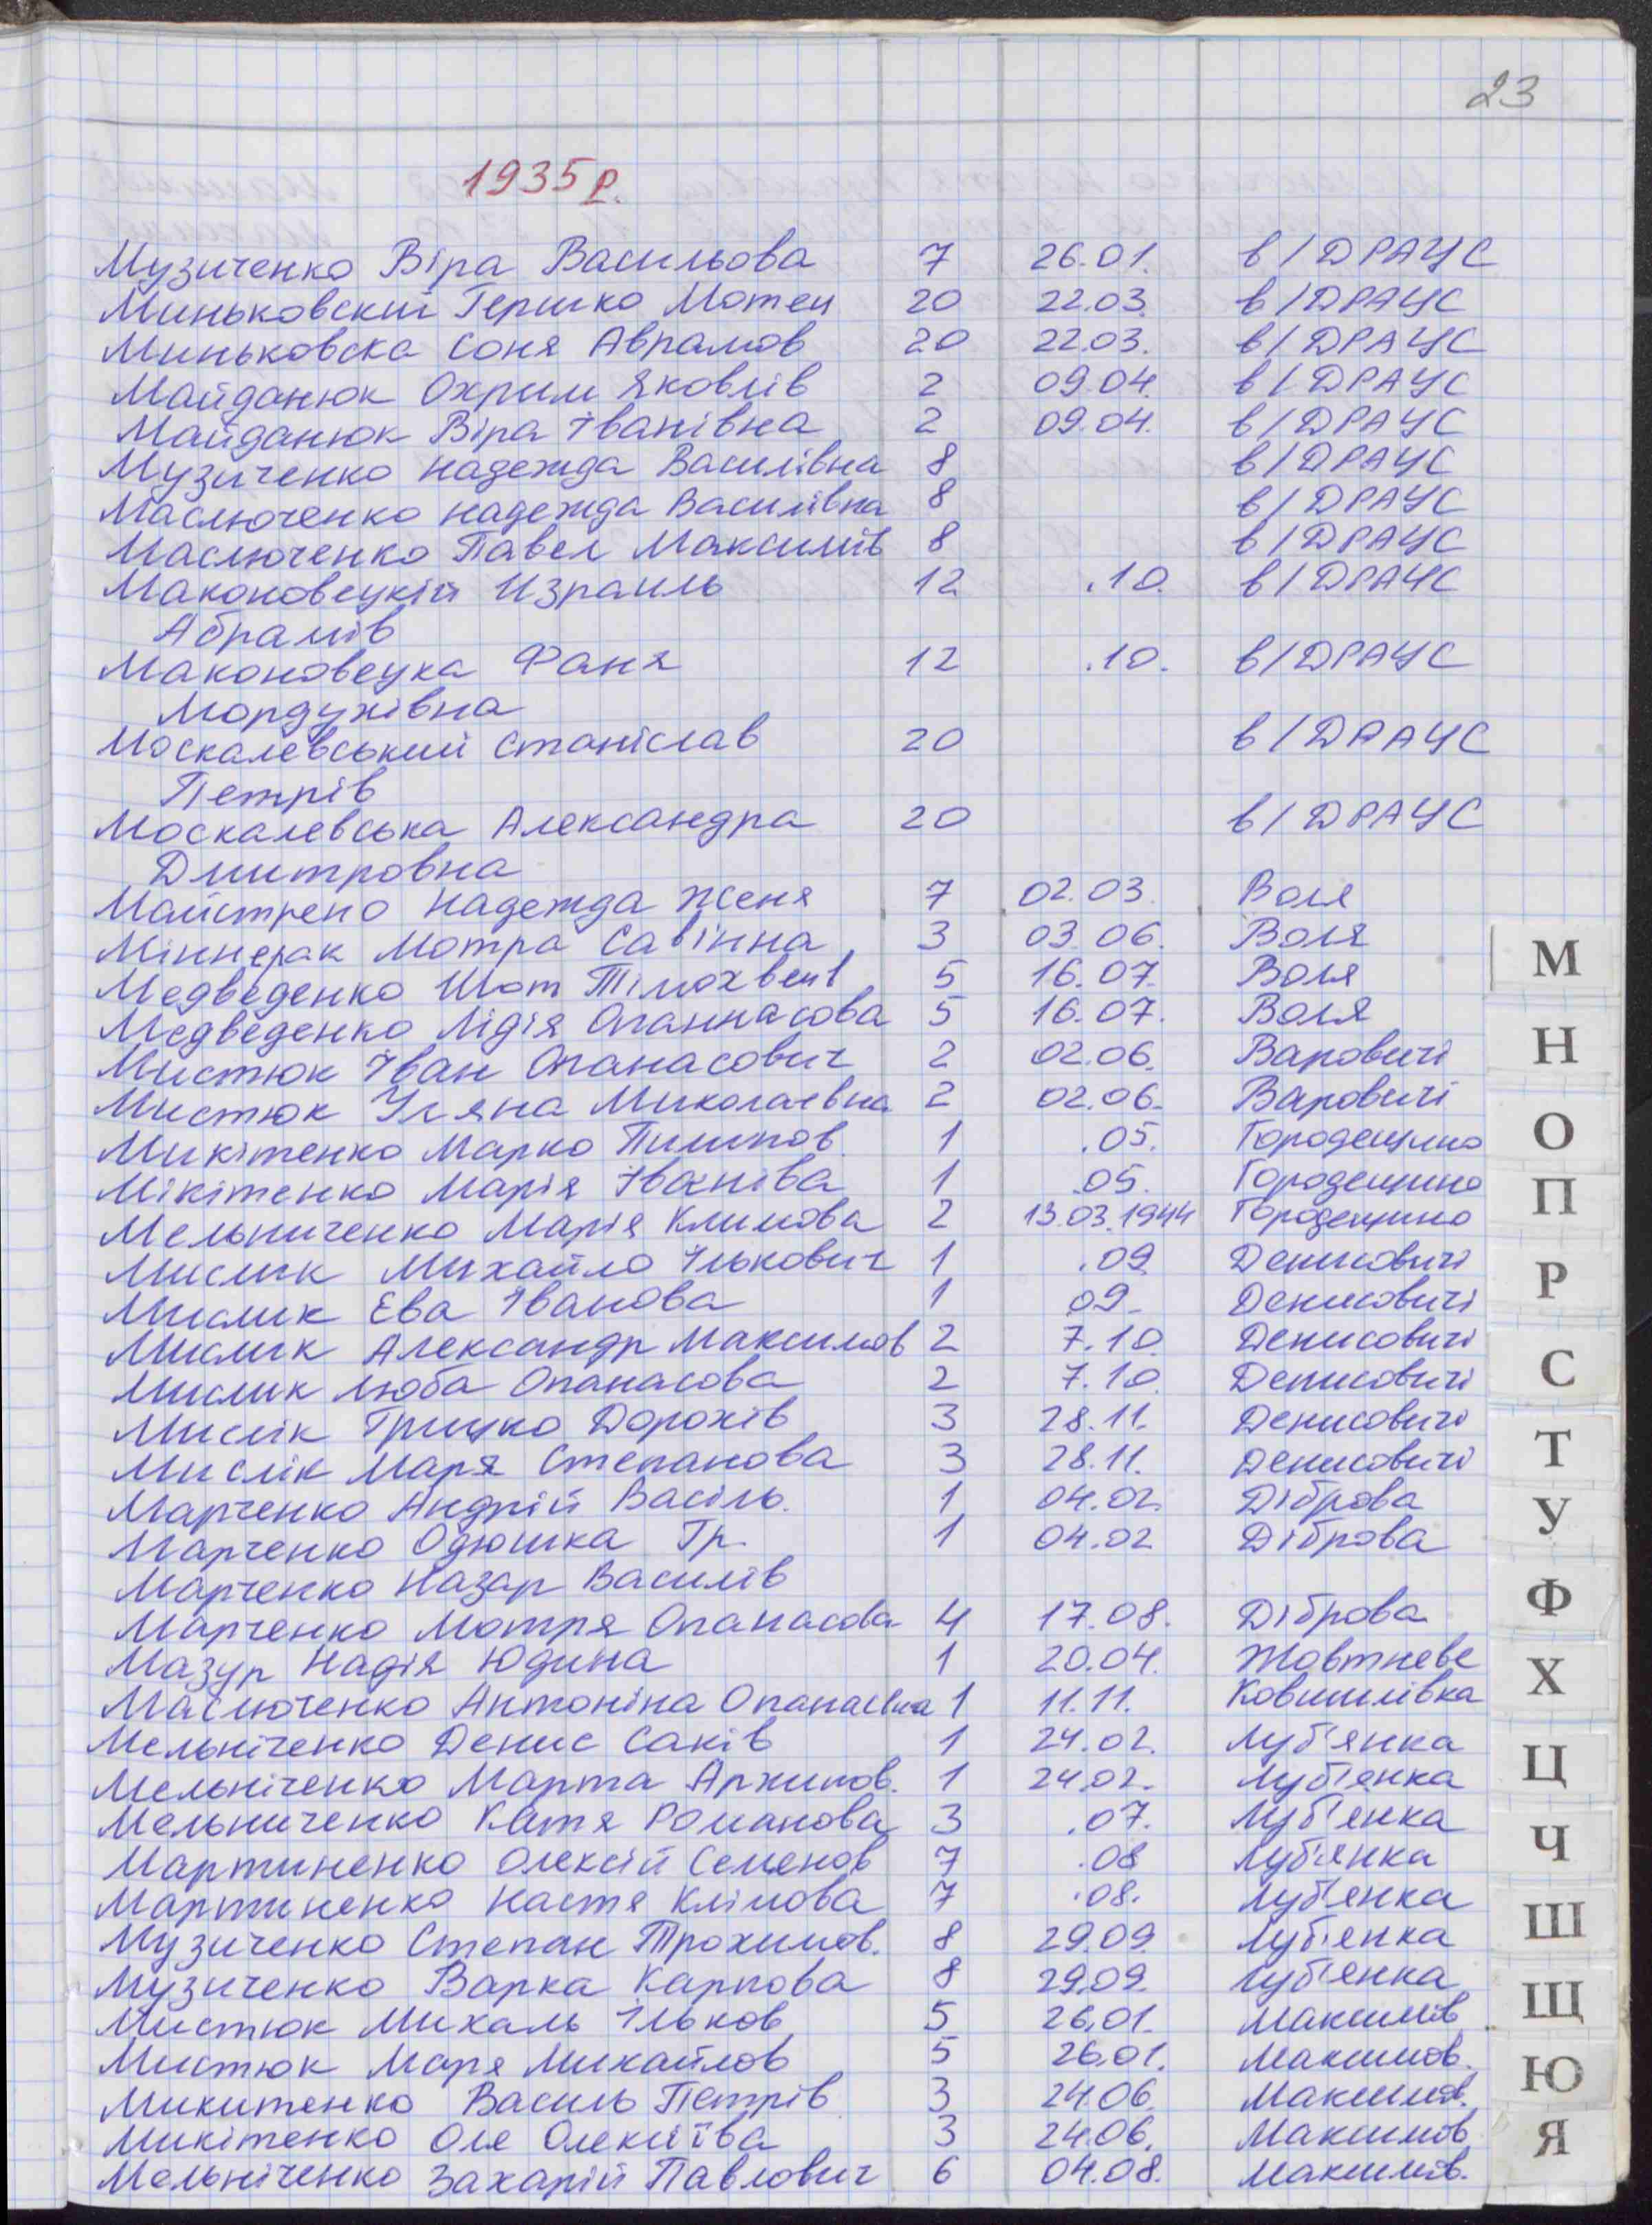 23
1935 р.
Музиченко Віра Васильова 7 26.01. в/ДРАЦС
Миньковский Гершко Мотеи 20 22.03. в/ДРАЦС
Миньковска Соня Аврамов 20 22.03. в/ДРАЦС
Майданюк Охрим Яковлів 2 09.04. в/ДРАЦС
Майданюк Віра Іванівна 2 09.04. в/ДРАЦС
Музиченко Надежда Василівна 8 в/ДРАЦС
Маслюченко Надежда Василівна 8 в/ДРАЦС
Маслюченко Павел Максимів 8 в/ДРАЦС
Маконовецкій Израиль 12 .10. в/ДРАЦС
Абрамів
Маконовецка Фаня 12 .10. в/ДРАЦС
Мордухівна
Москалевський Станіслав 20 в/ДРАЦС
Петрів
Москалевська Александра 20 в/ДРАЦС
Дмитровна
Майстрено Надежда Женя 7 02.03. Воля
Мотра Савінна 3 03.06. Воля
Медведенко 5 16.07. Воля
Медведенко Лідія Опаннасова 5 16.07. Воля
Мистюк Іван Опанасович 2 02.06. Варовичі
Мистюк Уляна Миколаевна 2 02.06. Варовичі
Микітенко Марко Пилипов 1 .05. Городещино
Мікітенко Марія Іваніва 1 .05. Городещино
Мельниченко Марія Климова 2 13.03.1944 Городещино
Мислик Михайло Ількович 1 .09 Денисовичі
Мислик Ева Іванова 1 09. Денисовичі
Мислик Александр Максимов 2 7.10. Денисовичі
Мислик Люба Опанасова 2 7.10. Денисовичі
Мислік Грицко Дорохів 3 28.11. Денисовичі
Мислік Маря Степанова 3 28.11. Денисовичі
Марченко Андрій Васіль. 1 04.02. Діброва
Марченко Одюшка Гр. 1 04.02 Діброва
Марченко Назар Василів
Марченко Мотря Опанасова 4 17.08. Діброва
Мазур Надія Юдина 1 20.04. Жовтневе
Маслюченко Антоніна Опанаевна 1 11.11. Ковшилівка
Мельніченко Денис Саків 1 24.02. Луб'янка
Мельніченко Марта Архипов. 1 24.02. Луб'янка
Мельниченко Катя Романова 3 .07. Луб'янка
Мартиненко Олексій Семенов 7 .08 Луб'янка
Мартиненко Настя Клімова 7 .08. Луб'янка
Музиченко Степан Трохимов. 8 29.09. Луб'янка
Музиченко Варка Карпова 8 29.09. Луб'янка
Мистюк Михаль Ільков 5 26.01. Максимів
Мистюк Маря Михайлов 5 26.01. Максимов.
Микитенко Василь Петрів 3 24.06. Максимов.
Микітенко Оля Олексіїва 3 24.06. Максимов
Мельніченко Захарій Павлович 6 04.08. Максимів.
М
Н
О
П
Р
С
Т
У
Ф
Х
Ц
Ч
Ш
Щ
Ю
Я